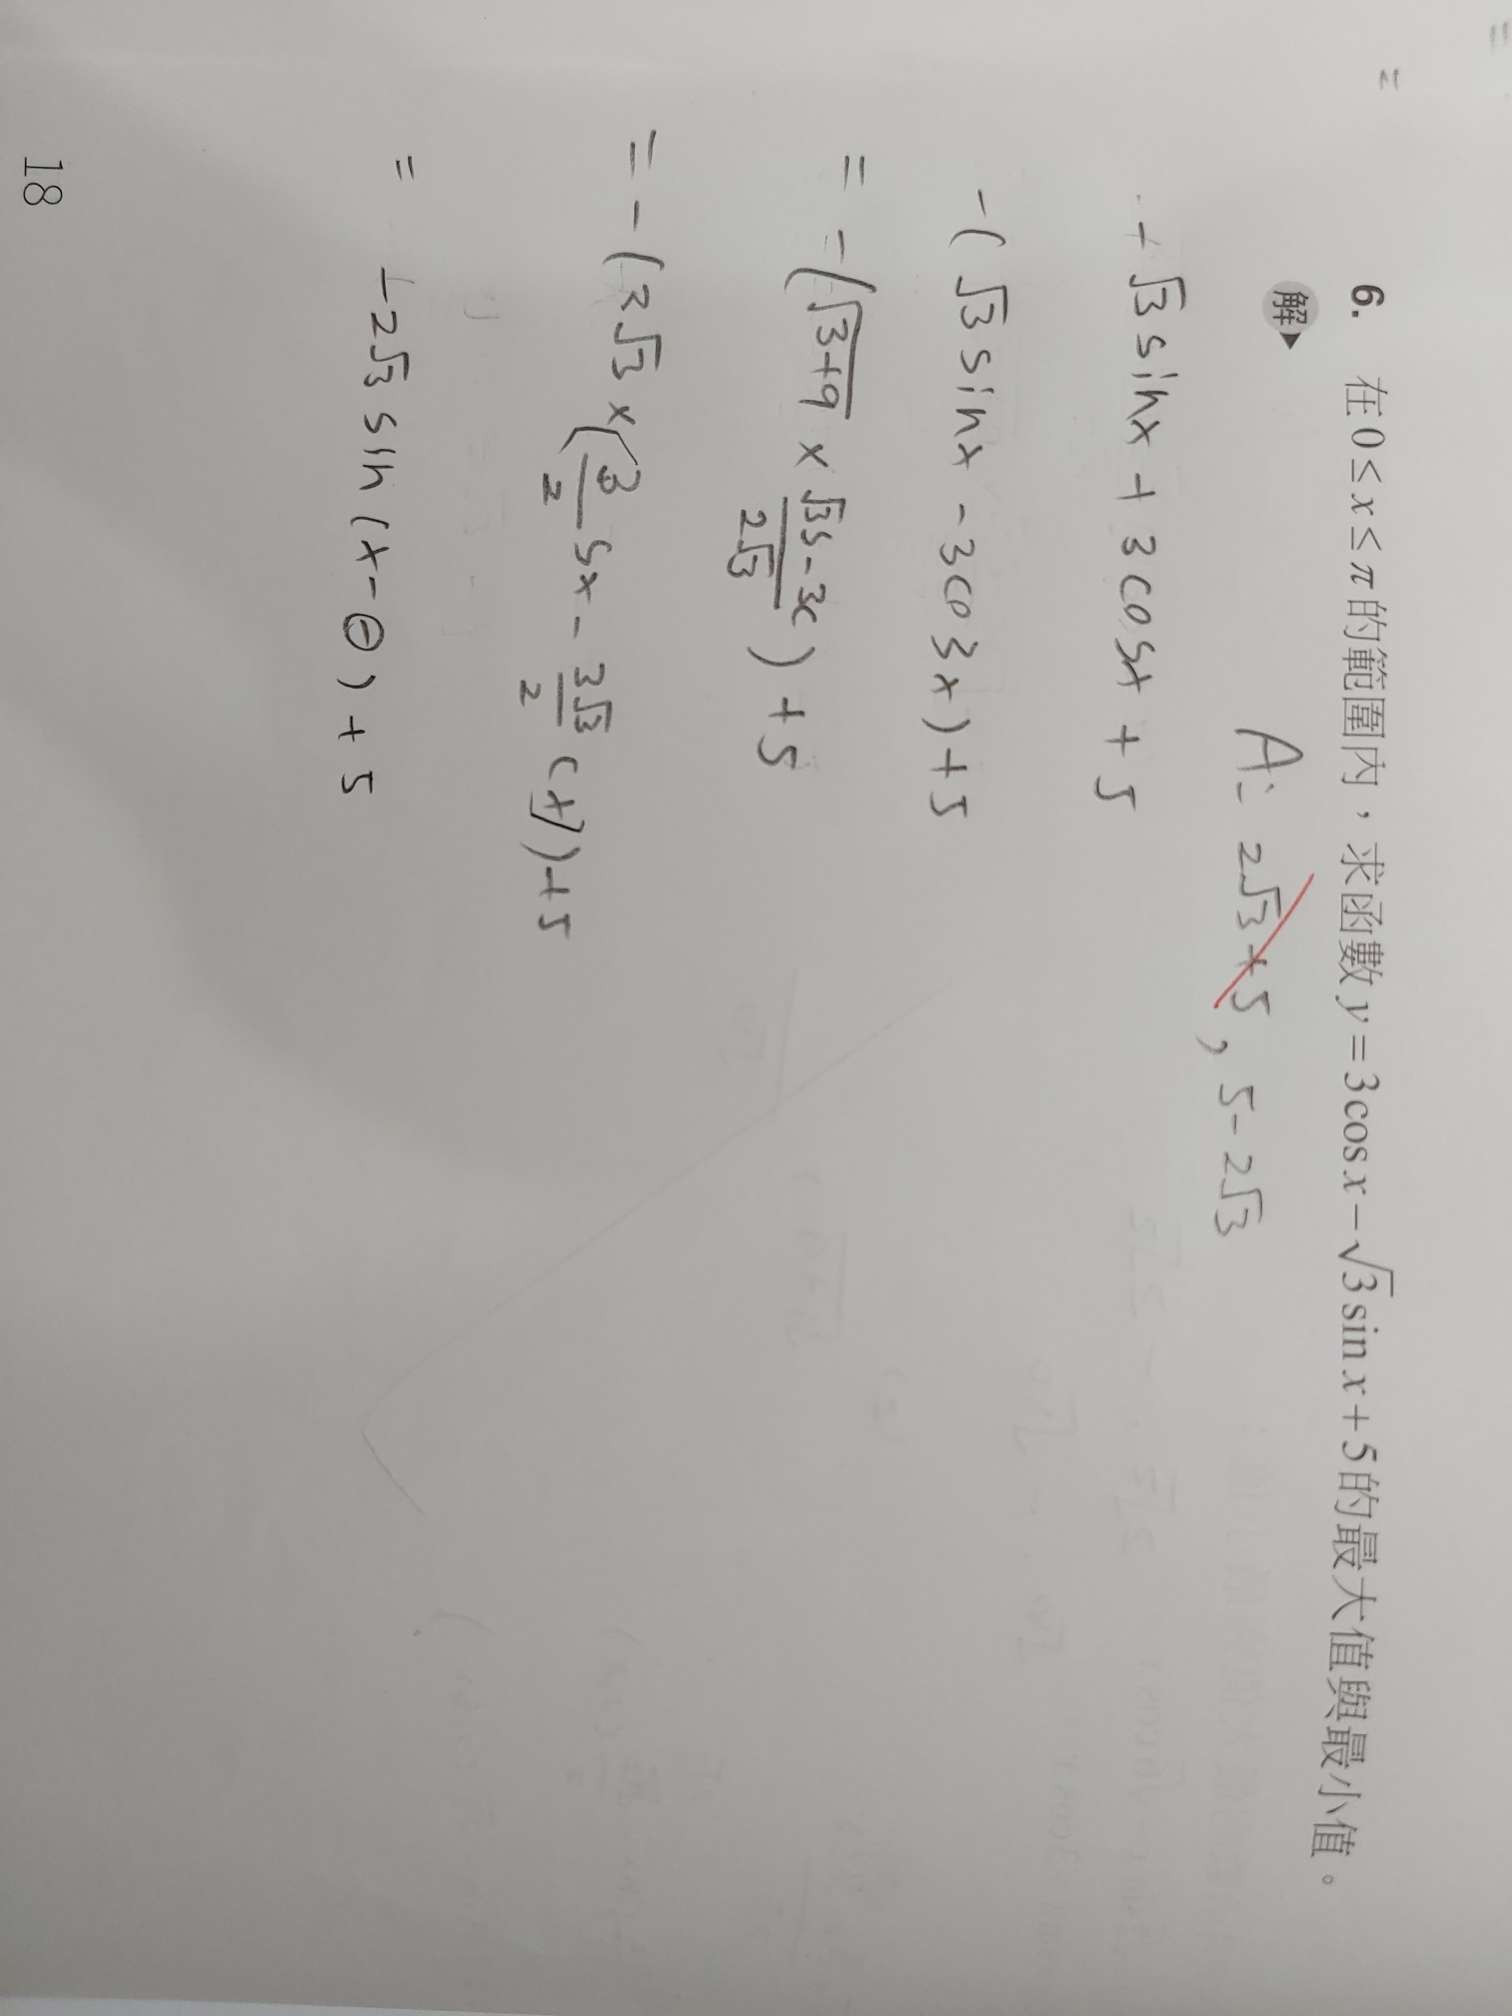 6. 在0≤x≤π的範圍內，求函數y=3cosx−√3sinx+5的最大值與最小值。
解▶
A: 2√3+5, 5-2√3
-√3sinx+3cosx+5
-(√3sinx-3cosx)+5
= -(√3+9 × (√3s-3c)/(2√3))+5
= -(2√3×(3/2 sx - 3√3/2 cx))+5
= -2√3 sin(x-θ)+5
18